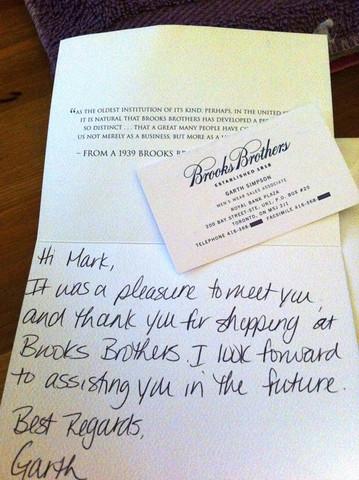 “AS THE OLDEST INSTITUTION OF ITS KIND, PERHAPS, IN THE UNITED
IT IS NATURAL THAT BROOKS BROTHERS HAS DEVELOPED A
SO DISTINCT . . . THAT A GREAT MANY PEOPLE HAVE
US NOT MERELY AS A BUSINESS, BUT MORE AS A
~ FROM A 1939 BROOKS
Brooks Brothers
ESTABLISHED 1818
GARTH SIMPSON
MEN'S WEAR SALES ASSOCIATE
ROYAL BANK PLAZA
200 BAY STREET-STE. UR1, P.O. BOX #20
TORONTO, ON M5J 2J1
TELEPHONE 416-368 FACSIMILE 416-368
Hi Mark,
It was a pleasure to meet you
and thank you for shopping at
Brooks Brothers. I look forward
to assisting you in the future.
Best Regards,
Garth